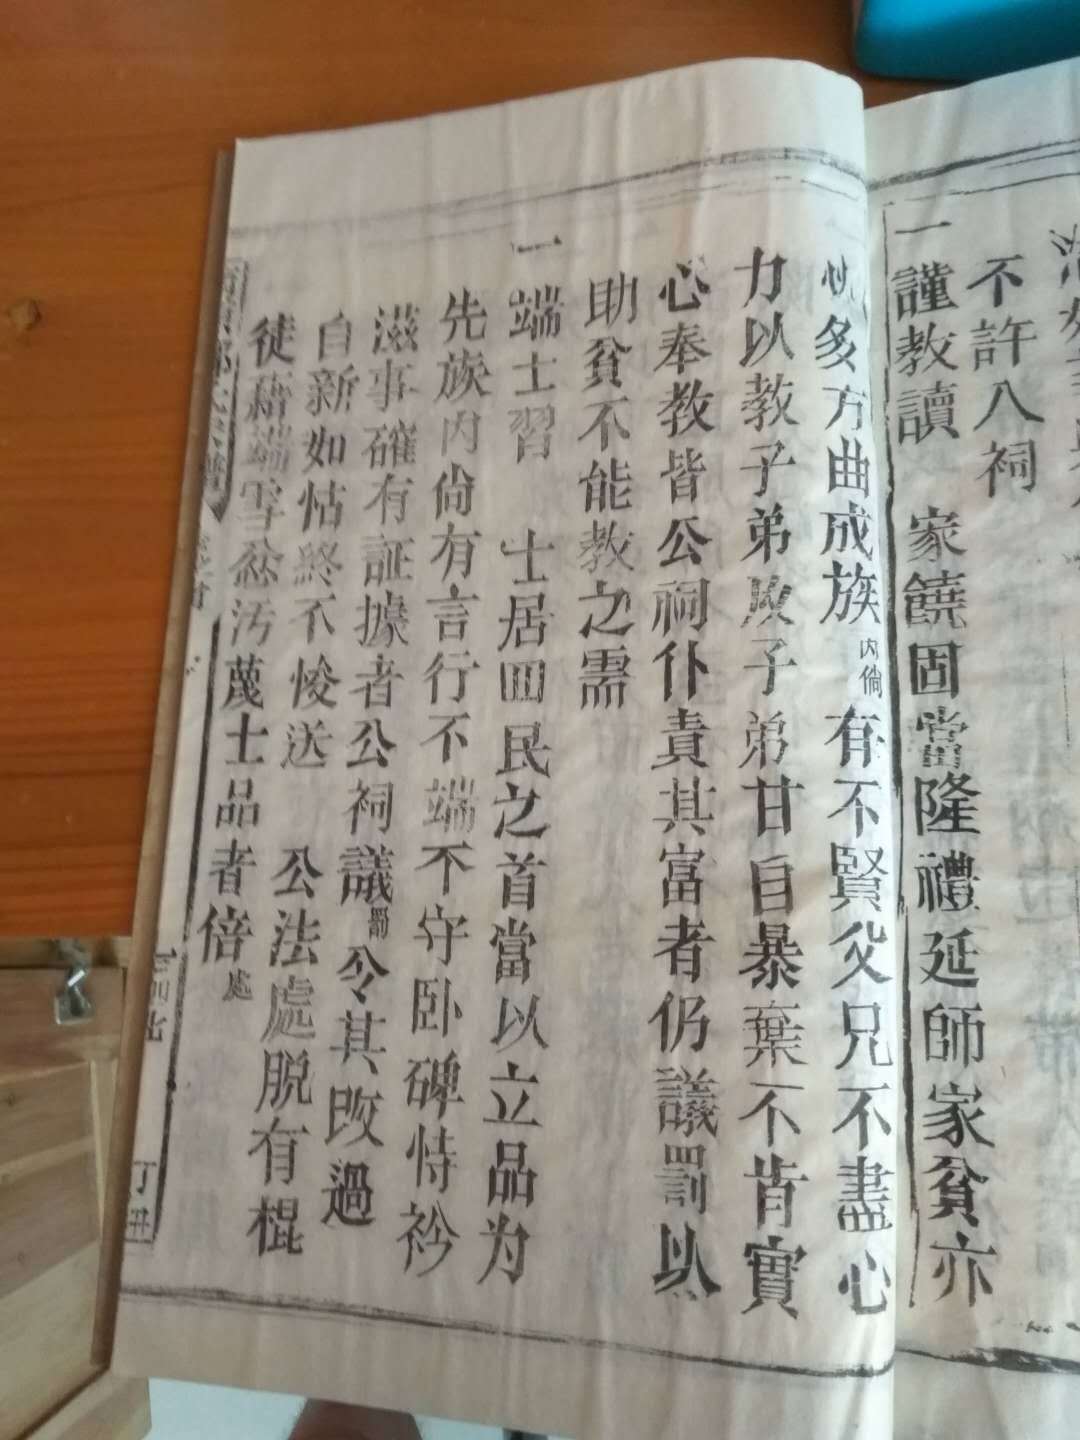 不許入祠
一謹教讀　家饒固當隆禮延師家貧亦
多方曲成族內倘有不賢父兄不盡心
力以教子弟與子弟甘自暴棄不肯實
心奉教皆公祠仆責其富者仍議罰以
助貧不能教之需
一端士習　士居四民之首當以立品为
先族內尙有言行不端不守卧碑恃衿
滋事確有証據者公祠議罰令其改過
自新如怙終不悛送　公法處脱有棍
徒藉端雪忿污蔑士品者倍處
丁丑